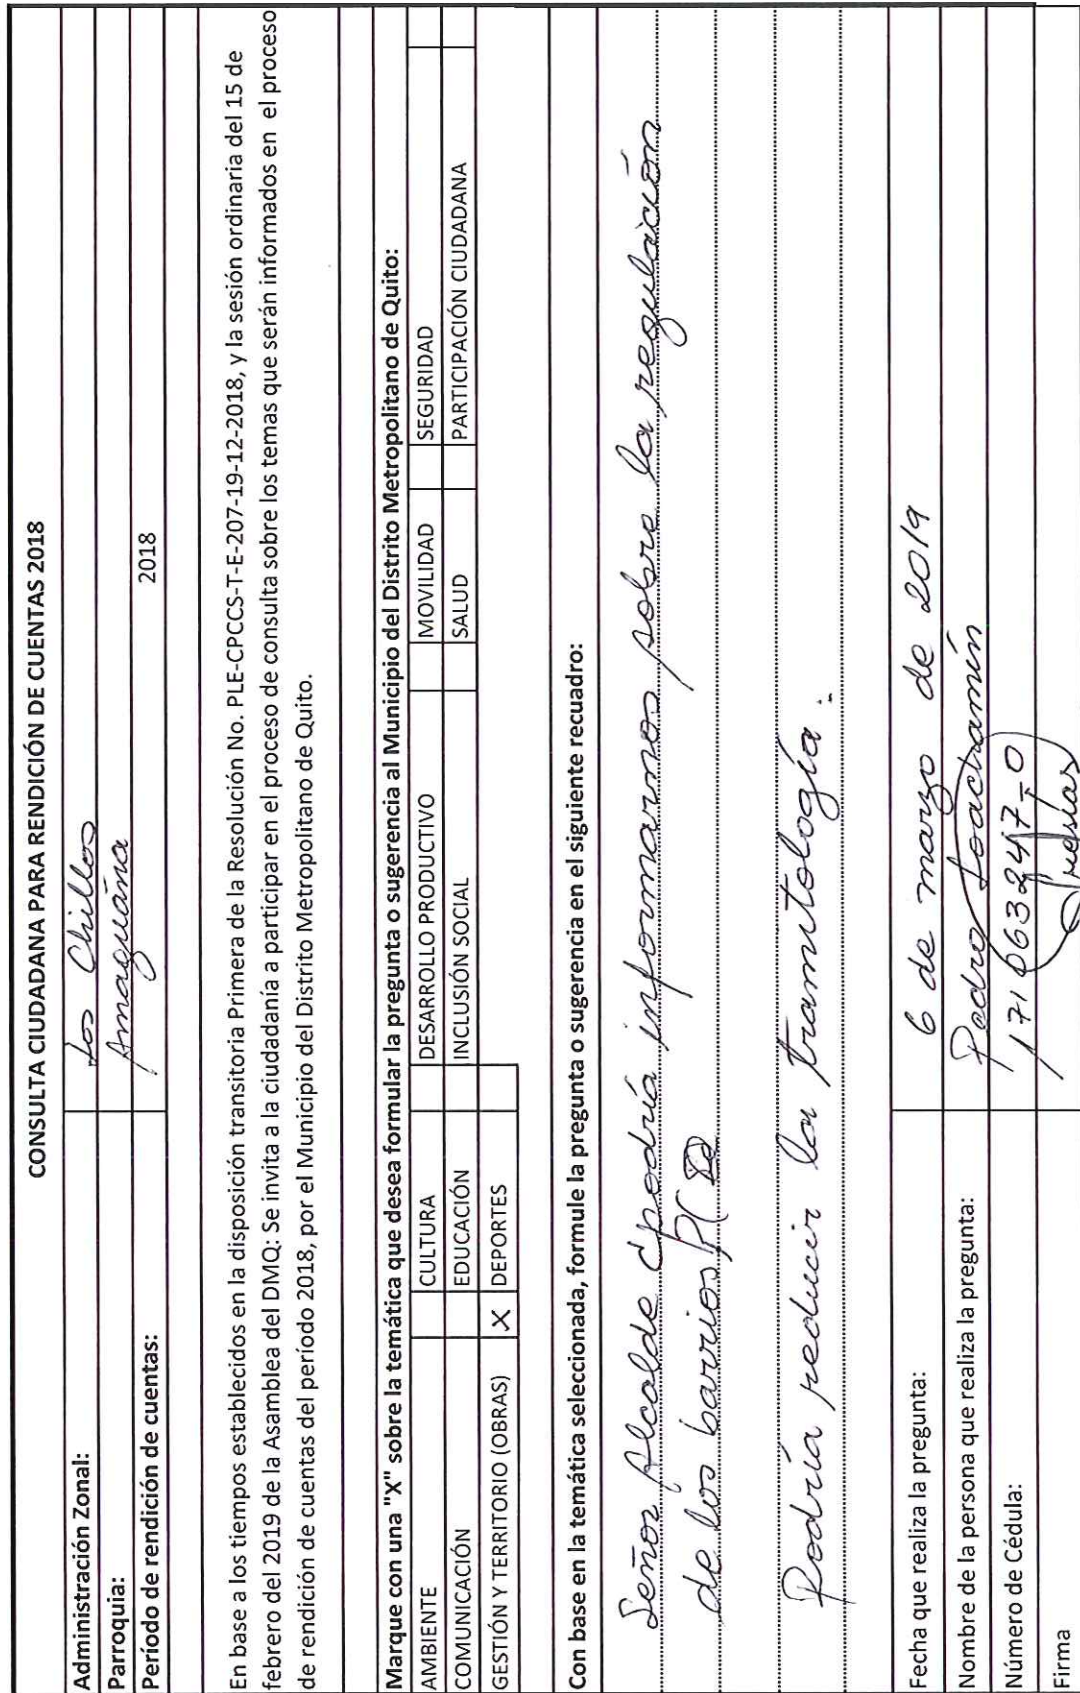 CONSULTA CIUDADANA PARA RENDICIÓN DE CUENTAS 2018
Administración Zonal: Los Chillos
Parroquia: Amaguaña
Período de rendición de cuentas: 2018
En base a los tiempos establecidos en la disposición transitoria Primera de la Resolución No. PLE-CPCCS-T-E-207-19-12-2018, y la sesión ordinaria del 15 de
febrero del 2019 de la Asamblea del DMQ: Se invita a la ciudadanía a participar en el proceso de consulta sobre los temas que serán informados en el proceso
de rendición de cuentas del período 2018, por el Municipio del Distrito Metropolitano de Quito.
Marque con una "X" sobre la temática que desea formular la pregunta o sugerencia al Municipio del Distrito Metropolitano de Quito:
AMBIENTE CULTURA DESARROLLO PRODUCTIVO MOVILIDAD SEGURIDAD
COMUNICACIÓN EDUCACIÓN INCLUSIÓN SOCIAL SALUD PARTICIPACIÓN CIUDADANA
GESTIÓN Y TERRITORIO (OBRAS) X DEPORTES
Con base en la temática seleccionada, formule la pregunta o sugerencia en el siguiente recuadro:
Señor Alcalde ¿podría informarnos sobre la regulación
de los barrios
Podría reducir la tramitología.
Fecha que realiza la pregunta: 6 de marzo de 2019
Nombre de la persona que realiza la pregunta: Pedro Loachamín
Número de Cédula: 171063247-0
Firma